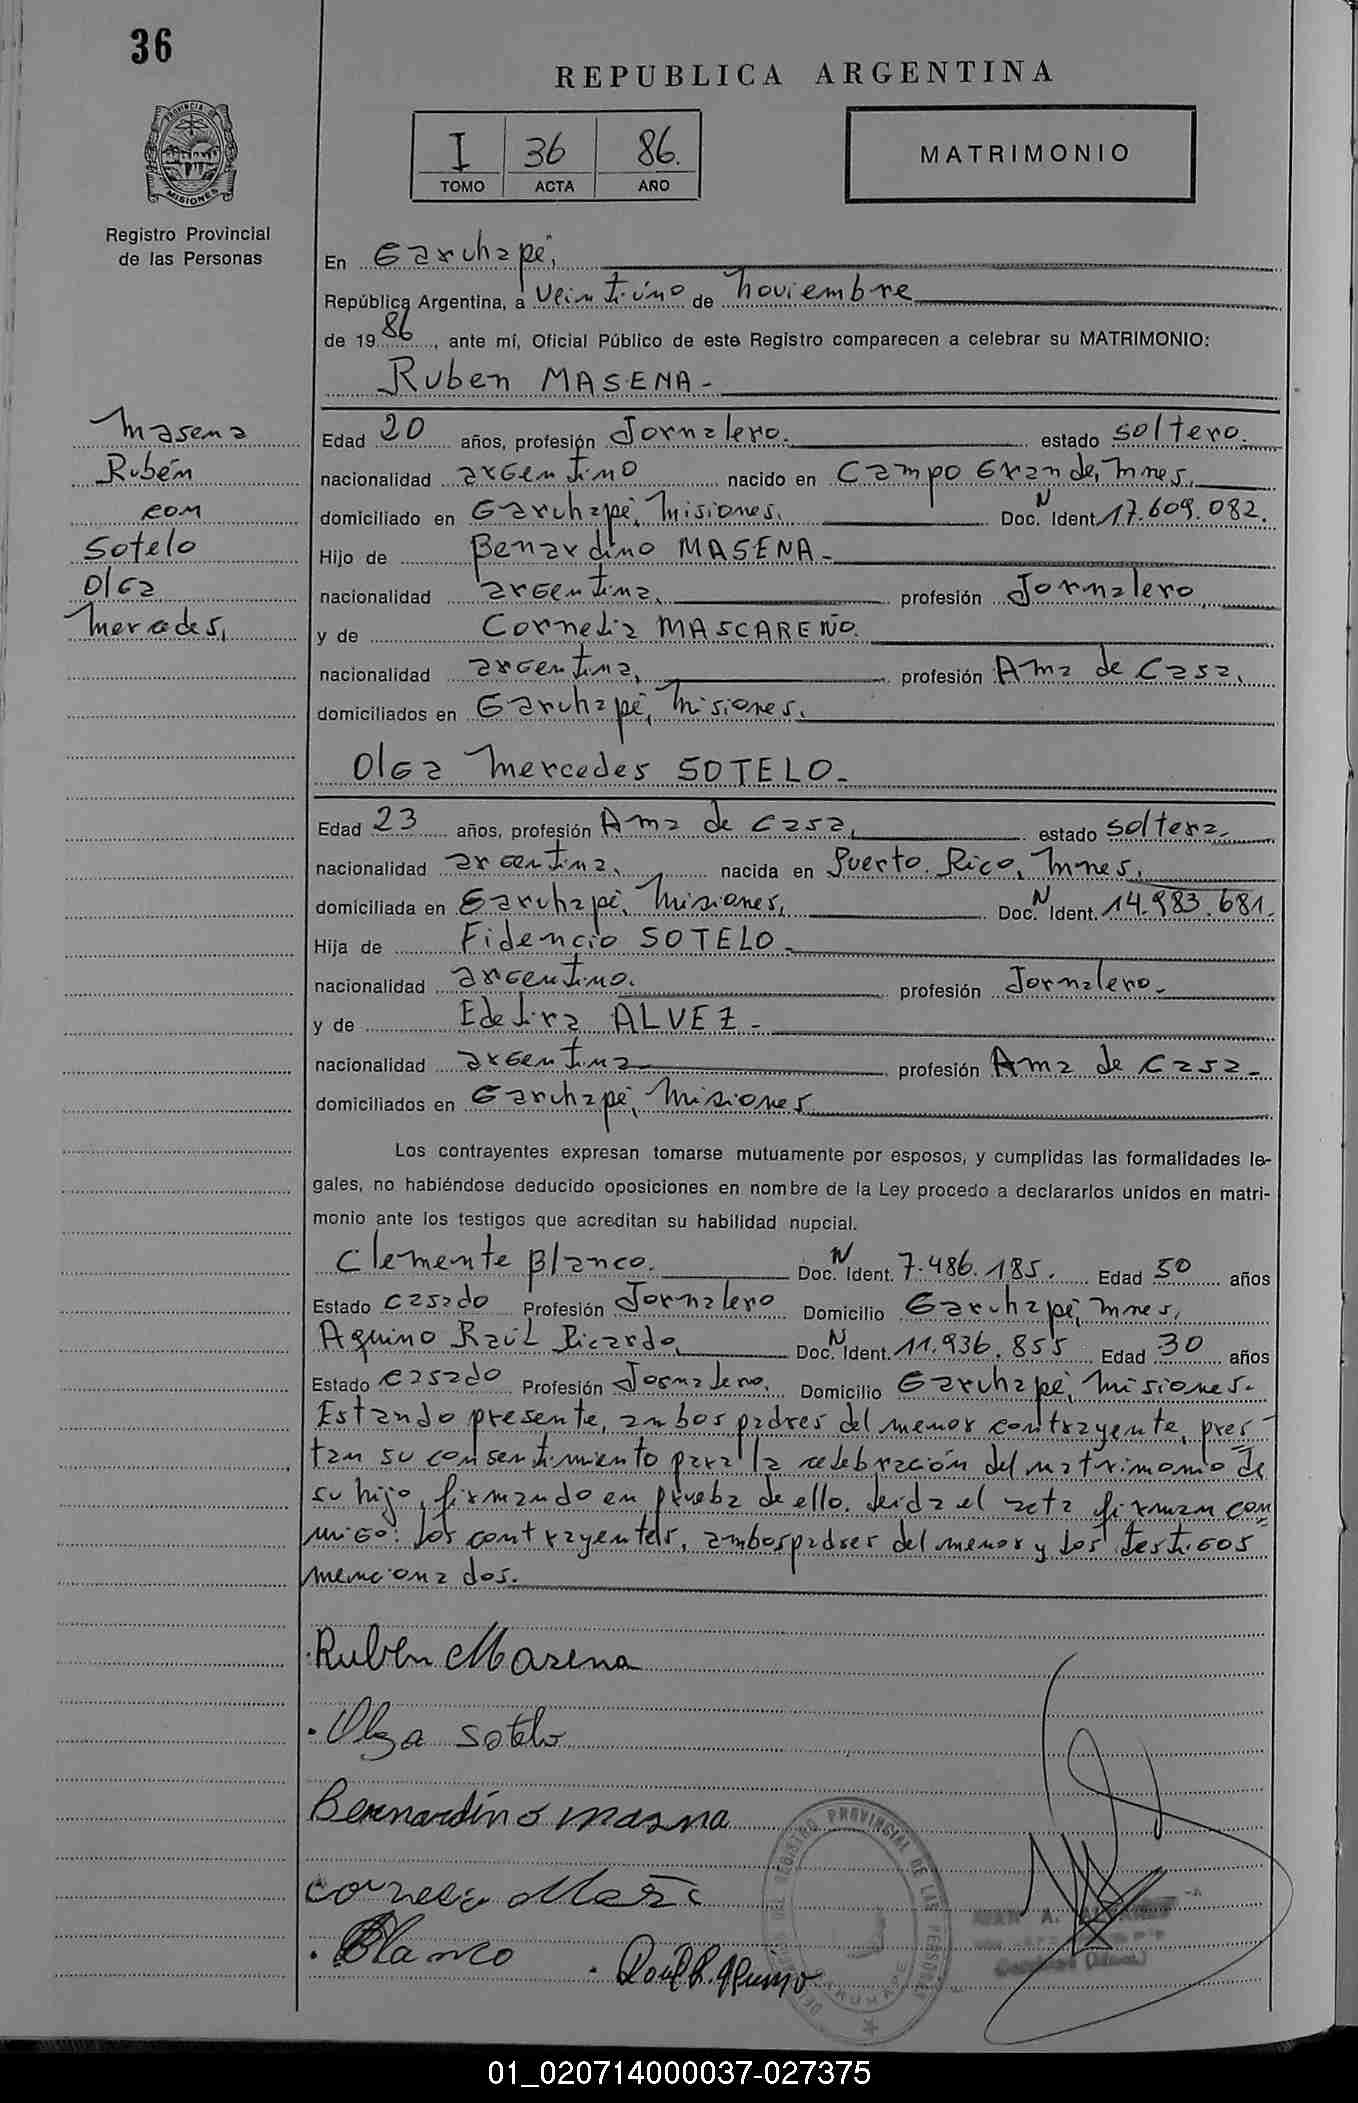 36
REPUBLICA ARGENTINA
I 36 86.
TOMO ACTA AÑO
MATRIMONIO
PROVINCIA DE
MISIONES
Registro Provincial
de las Personas
En Garuhapé,
República Argentina, a Veintiúno de noviembre
de 19 86, ante mí, Oficial Público de este Registro comparecen a celebrar su MATRIMONIO:
Ruben MASENA-
Masena
Rubén
con
Sotelo
Olga
Mercedes,
Edad 20 años, profesión Jornalero. estado soltero.
nacionalidad argentino nacido en Campo Grande, Mnes,
domiciliado en Garuhapé, Misiones, Doc. N Ident. 17.609.082.
Hijo de Benardino MASENA-
nacionalidad argentina, profesión Jornalero,
y de Cornelia MASCAREÑO.
nacionalidad argentina, profesión Ama de Casa,
domiciliados en Garuhapé, Misiones,
Olga Mercedes SOTELO-
Edad 23 años, profesión Ama de Casa, estado soltera,
nacionalidad argentina, nacida en Puerto Rico, Mnes,
domiciliada en Garuhapé, Misiones, Doc. N Ident. 14.983.681.
Hija de Fidencio SOTELO-
nacionalidad argentino. profesión Jornalero-
y de Edelira ALVEZ-
nacionalidad argentina profesión Ama de Casa-
domiciliados en Garuhapé, Misiones
Los contrayentes expresan tomarse mutuamente por esposos, y cumplidas las formalidades le-
gales, no habiéndose deducido oposiciones en nombre de la Ley procedo a declararlos unidos en matri-
monio ante los testigos que acreditan su habilidad nupcial.
Clemente Blanco. Doc. N Ident. 7.486.185. Edad 50 años
Estado Casado Profesión Jornalero Domicilio Garuhapé, Mnes,
Aquino Raúl Ricardo, Doc. N Ident. 11.936.855 Edad 30 años
Estado Casado Profesión Jornalero, Domicilio Garuhapé, Misiones-
Estando presente, ambos padres del menor contrayente, pres-
tan su consentimiento para la celebración del matrimonio de
su hijo, firmando en prueba de ello. Leida el acta firman con
migo: los contrayentes, ambos padres del menor y los testigos
mencionados.
Ruben Masena
Olga Sotelo
Bernardino masna
Cornelia
Blanco
DEL REGISTRO PROVINCIAL DE LAS PERSONAS
GARUHAPE
01_020714000037-027375